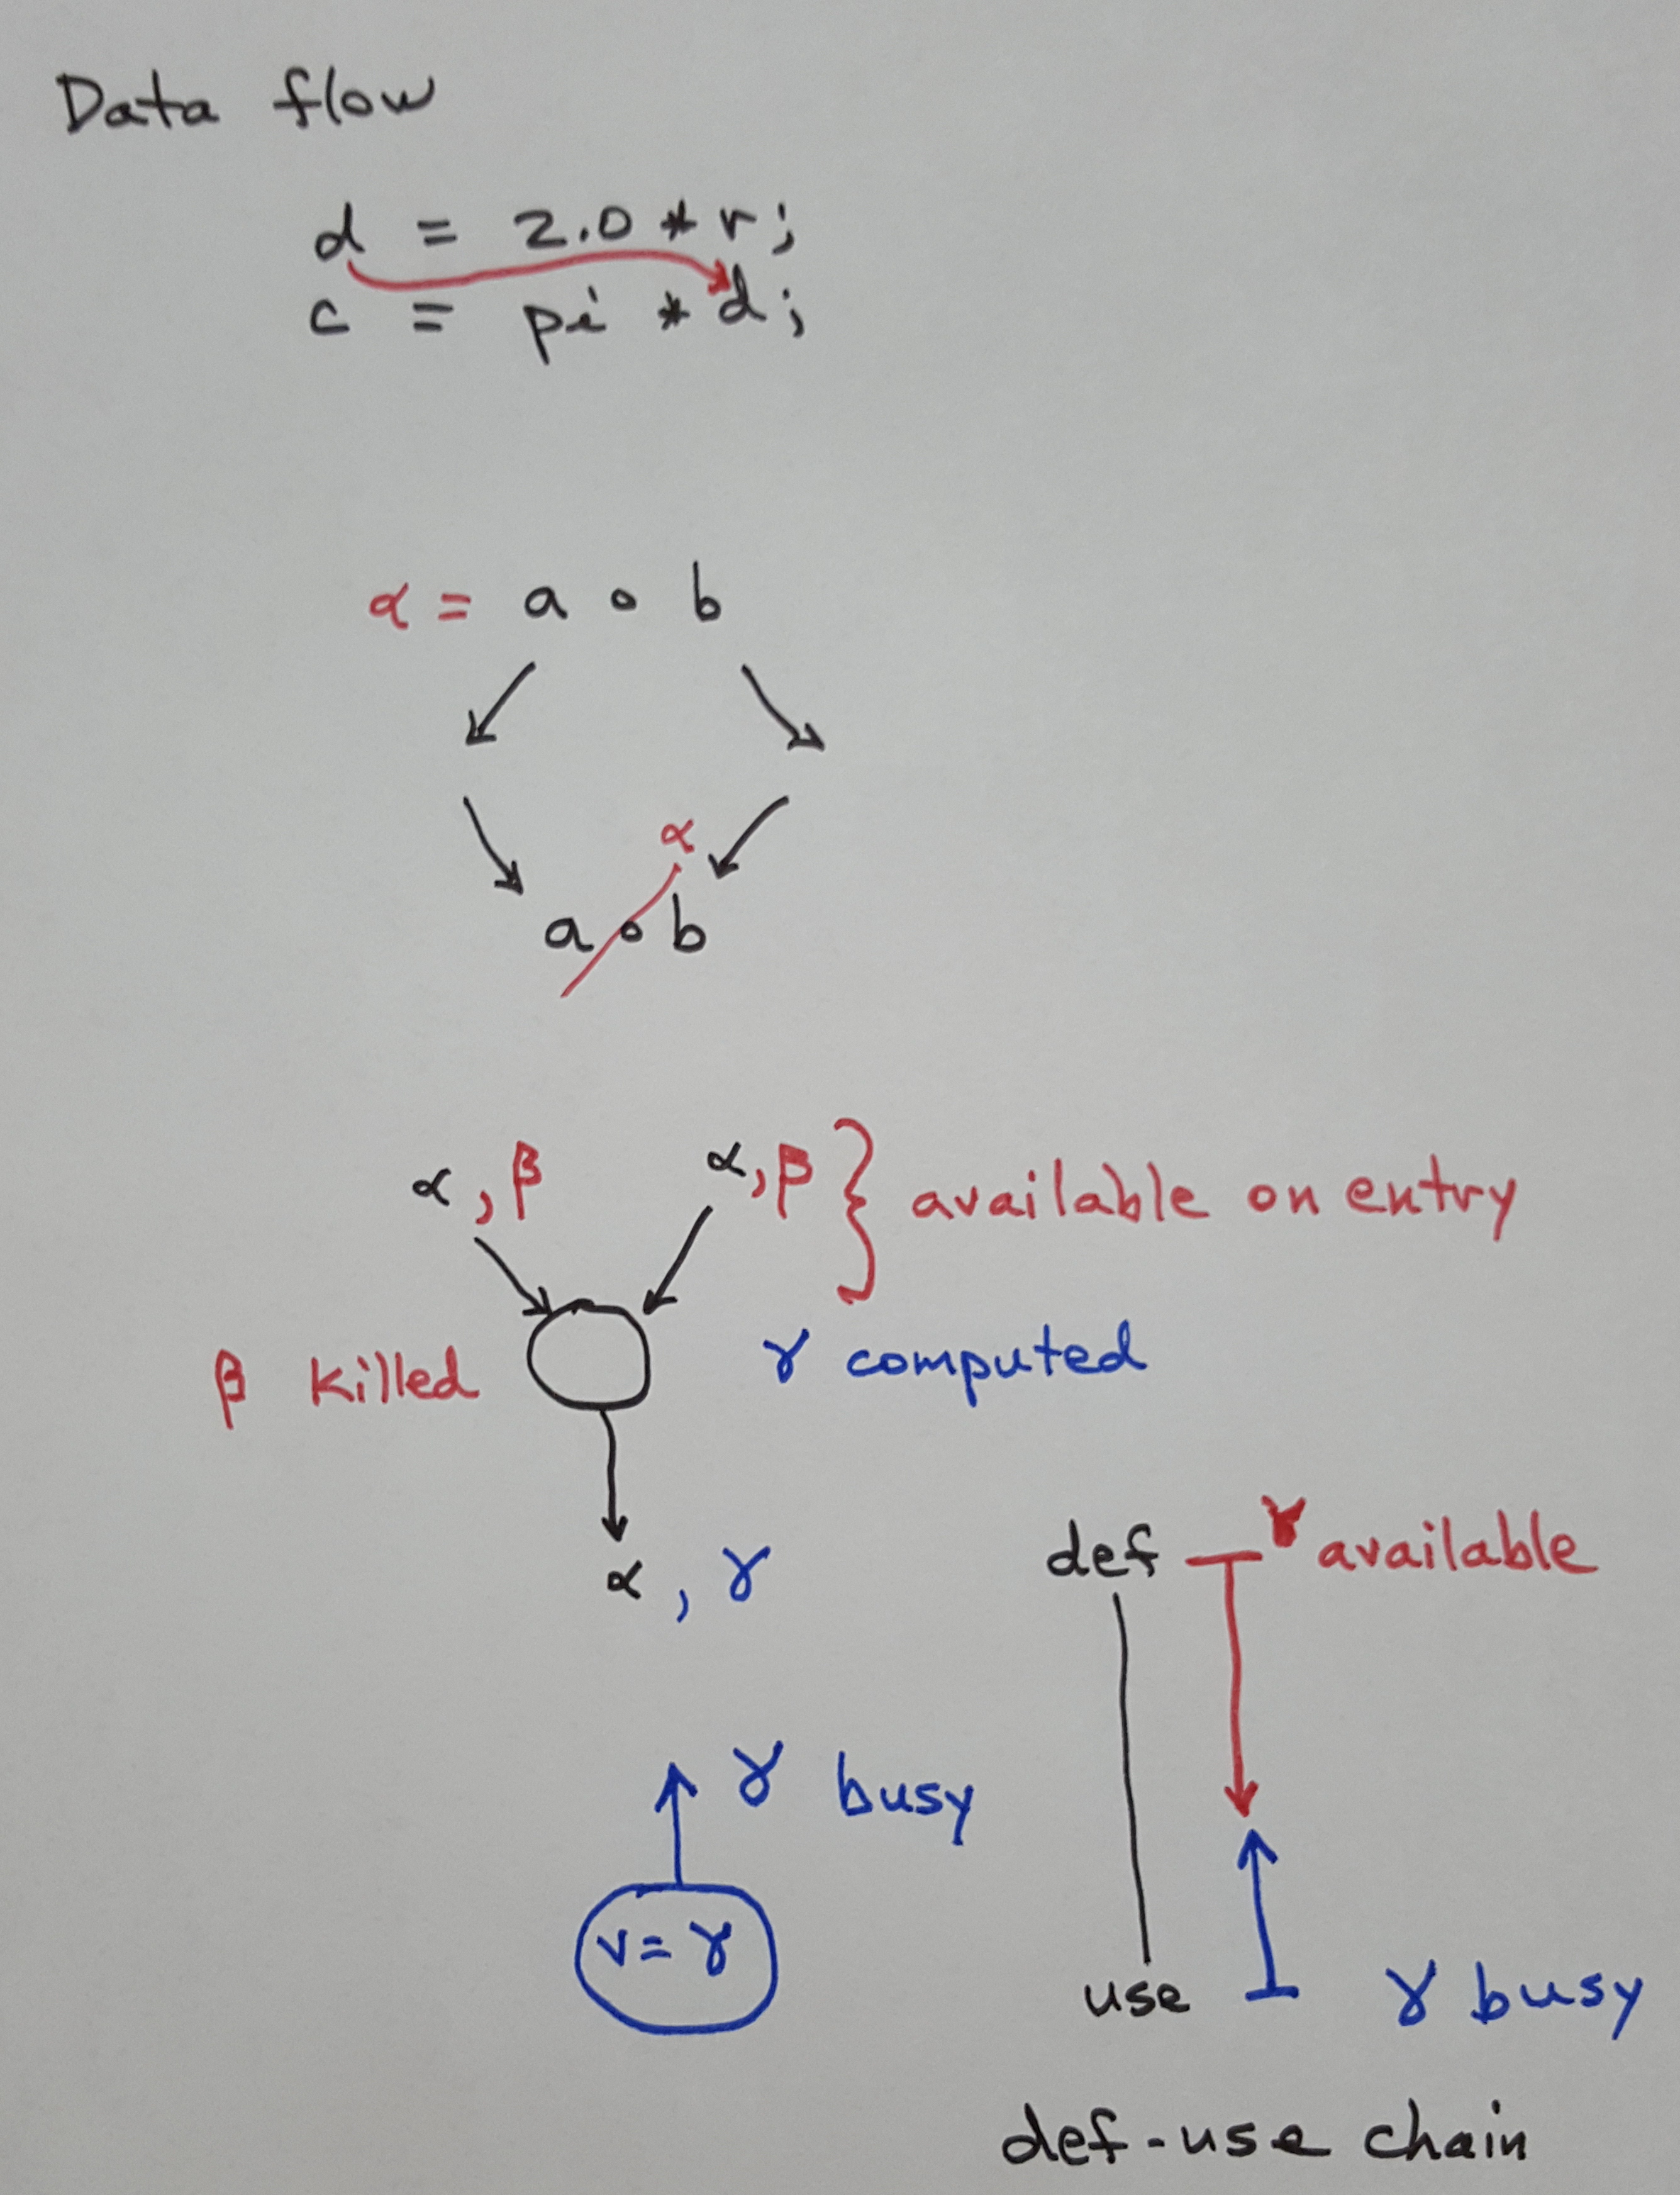 Data flow
d = 2.0 * r;
c = pi * d;
α = a ∘ b
α
a ∘ b
α, β α, β } available on entry
β killed γ computed
α, γ
def γ available
γ busy
v = γ
use γ busy
def-use chain